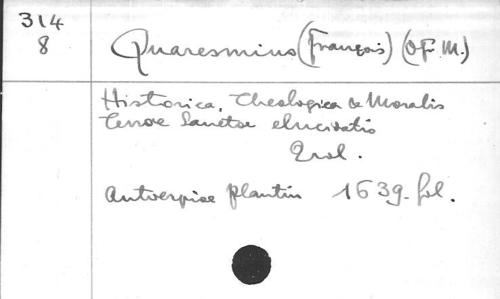 314
8
Quaresmius (François) (O.F.M.)
Historica, Theologica & Moralis
Terrae Sanctae elucidatio
2 vol.
Antverpiae Plantin 1639. fol.